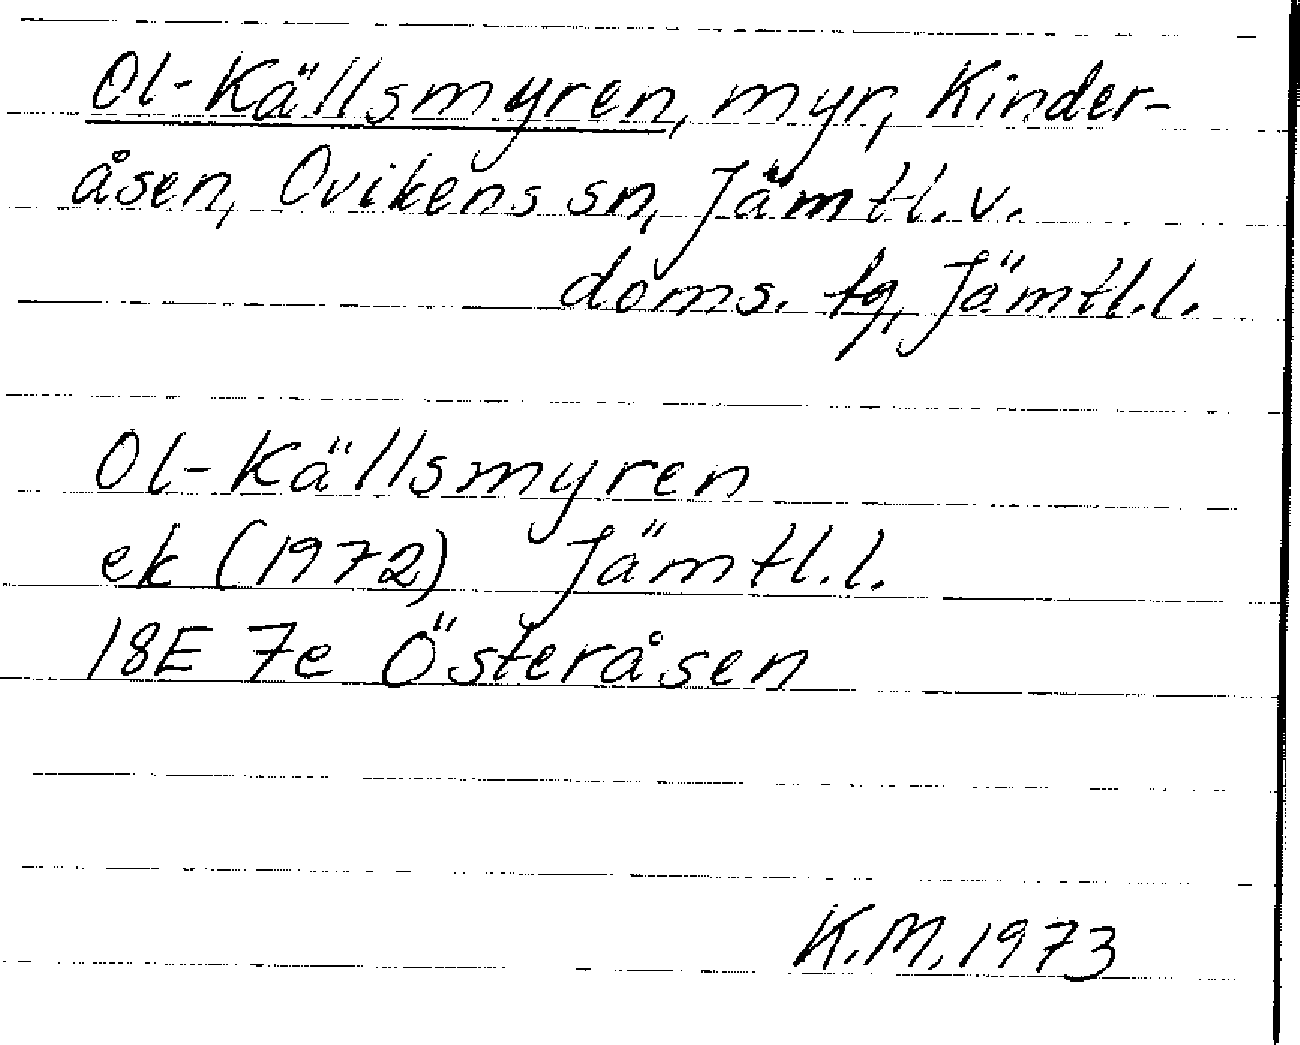 Ol-Källsmyren, myr, Kinder-
åsen, Ovikens sn, Jämtl. v.
doms. tg, Jämtl.l.
Ol-Källsmyren
ek (1972) Jämtl.l.
18E 7e Österåsen
K.M. 1973